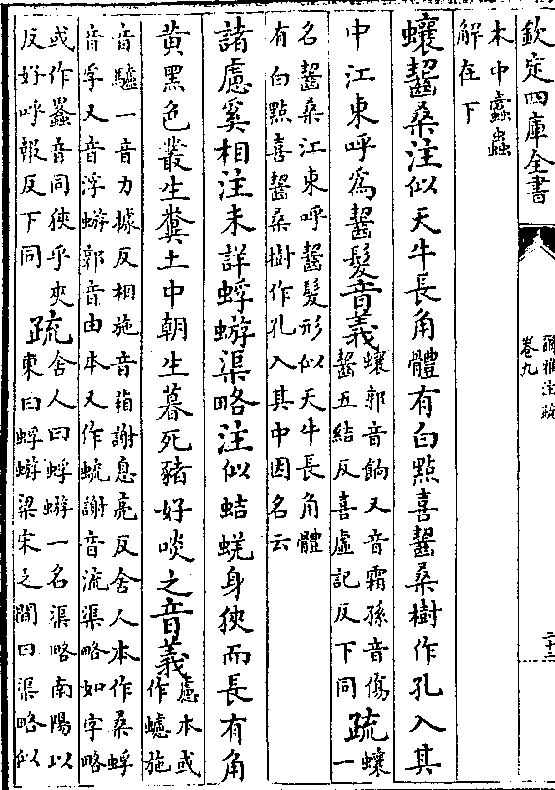 欽定四庫全書
爾雅注疏
卷九
二十二
木中蠹蟲
解在下
蠰齧桑注似天牛長角體有白點喜齧桑樹作孔入其
中江東呼爲齧髮音義蠰郭音餉又音霜孫音傷
齧五結反喜虛記反下同疏蠰一
名齧桑江東呼齧髮形似天牛長角體
有白點喜齧桑樹作孔入其中因名云
諸慮奚相注未詳蜉蝣渠略注似蛣蜣身狹而長有角
黄黑色叢生糞土中朝生暮死豬好啖之音義慮本或
作蠦施
音驢一音力據反相施音箱謝息亮反舍人本作桑蜉
音孚又音浮蝣郭音由本又作蝣謝音流渠略如字略
或作𧎾音同狹乎夾
反好呼報反下同疏舍人曰蜉蝣一名渠略南陽以
東曰蜉蝣梁宋之間曰渠略似